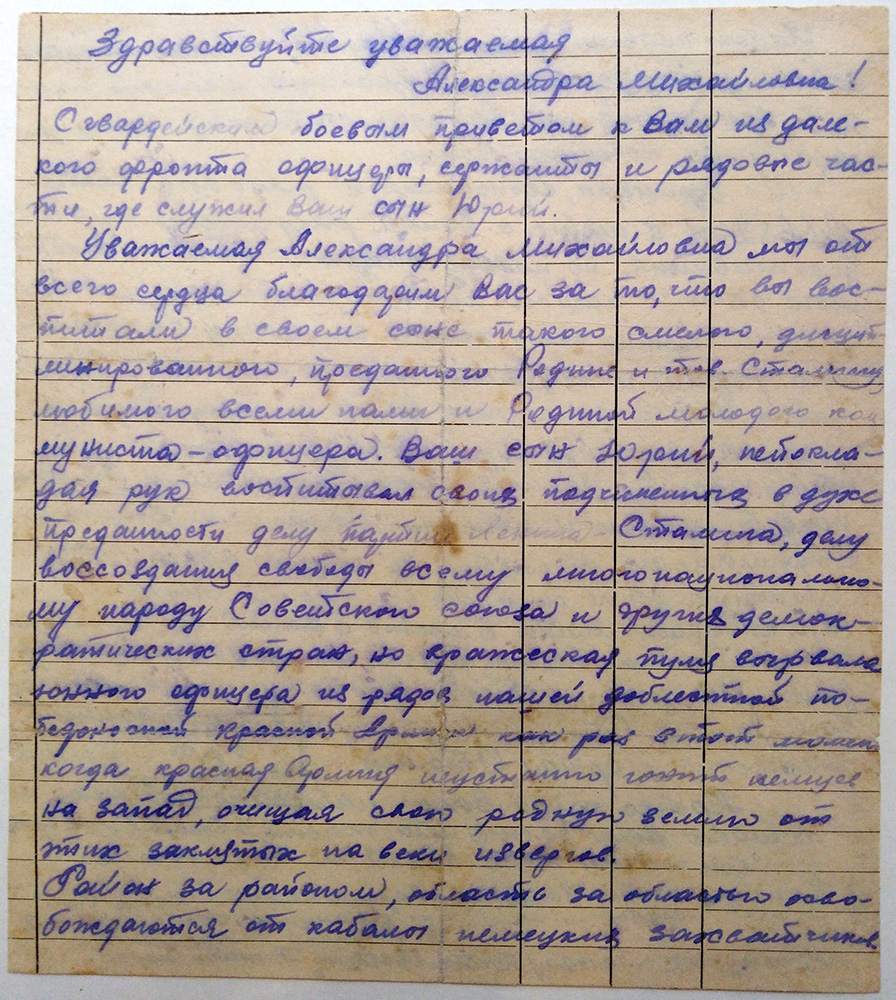 Здравствуйте уважаемая
Александра Михайловна!
С гвардейским боевым приветом к Вам из дале-
кого фронта офицеры, сержанты и рядовые час-
ти, где служил Ваш сын Юрий.
Уважаемая Александра Михайловна мы от
всего сердца благодарим Вас за то, что вы вос-
питали в своем сыне такого смелого, дисцип
линированного, преданного Родине и тов. Сталину,
любимого всеми нами и Родиной молодого ком
муниста-офицера. Ваш сын Юрий, непокла-
дая рук воспитывал своих подчиненных в духе
преданности делу партии Ленина-Сталина, делу
воссоздания свободы всему многонационально-
му народу Советского союза и других демок-
ратических стран, но вражеская пуля вырвала
юного офицера из рядов нашей доблестной по-
бедоносной Красной Армии как раз в тот момент
когда красная Армия неустанно гонит немцев
на запад, очищая свою родную землю от
этих заклятых на веки извергов.
Район за районом, область за областью осво-
бождаются от кабалы немецких захватчиков